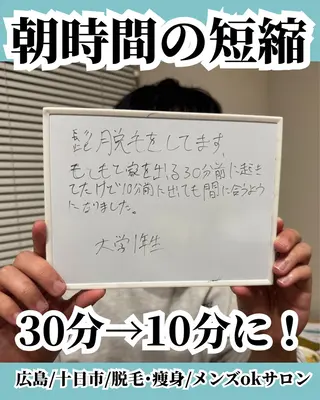 朝時間の短縮
髭脱毛をしてます。
もともと家を出る30分前に起き
てたけど10分前に出ても間に合うよう
になりました。
大学1年生
30分→10分に！
広島/十日市/脱毛・痩身/メンズokサロン